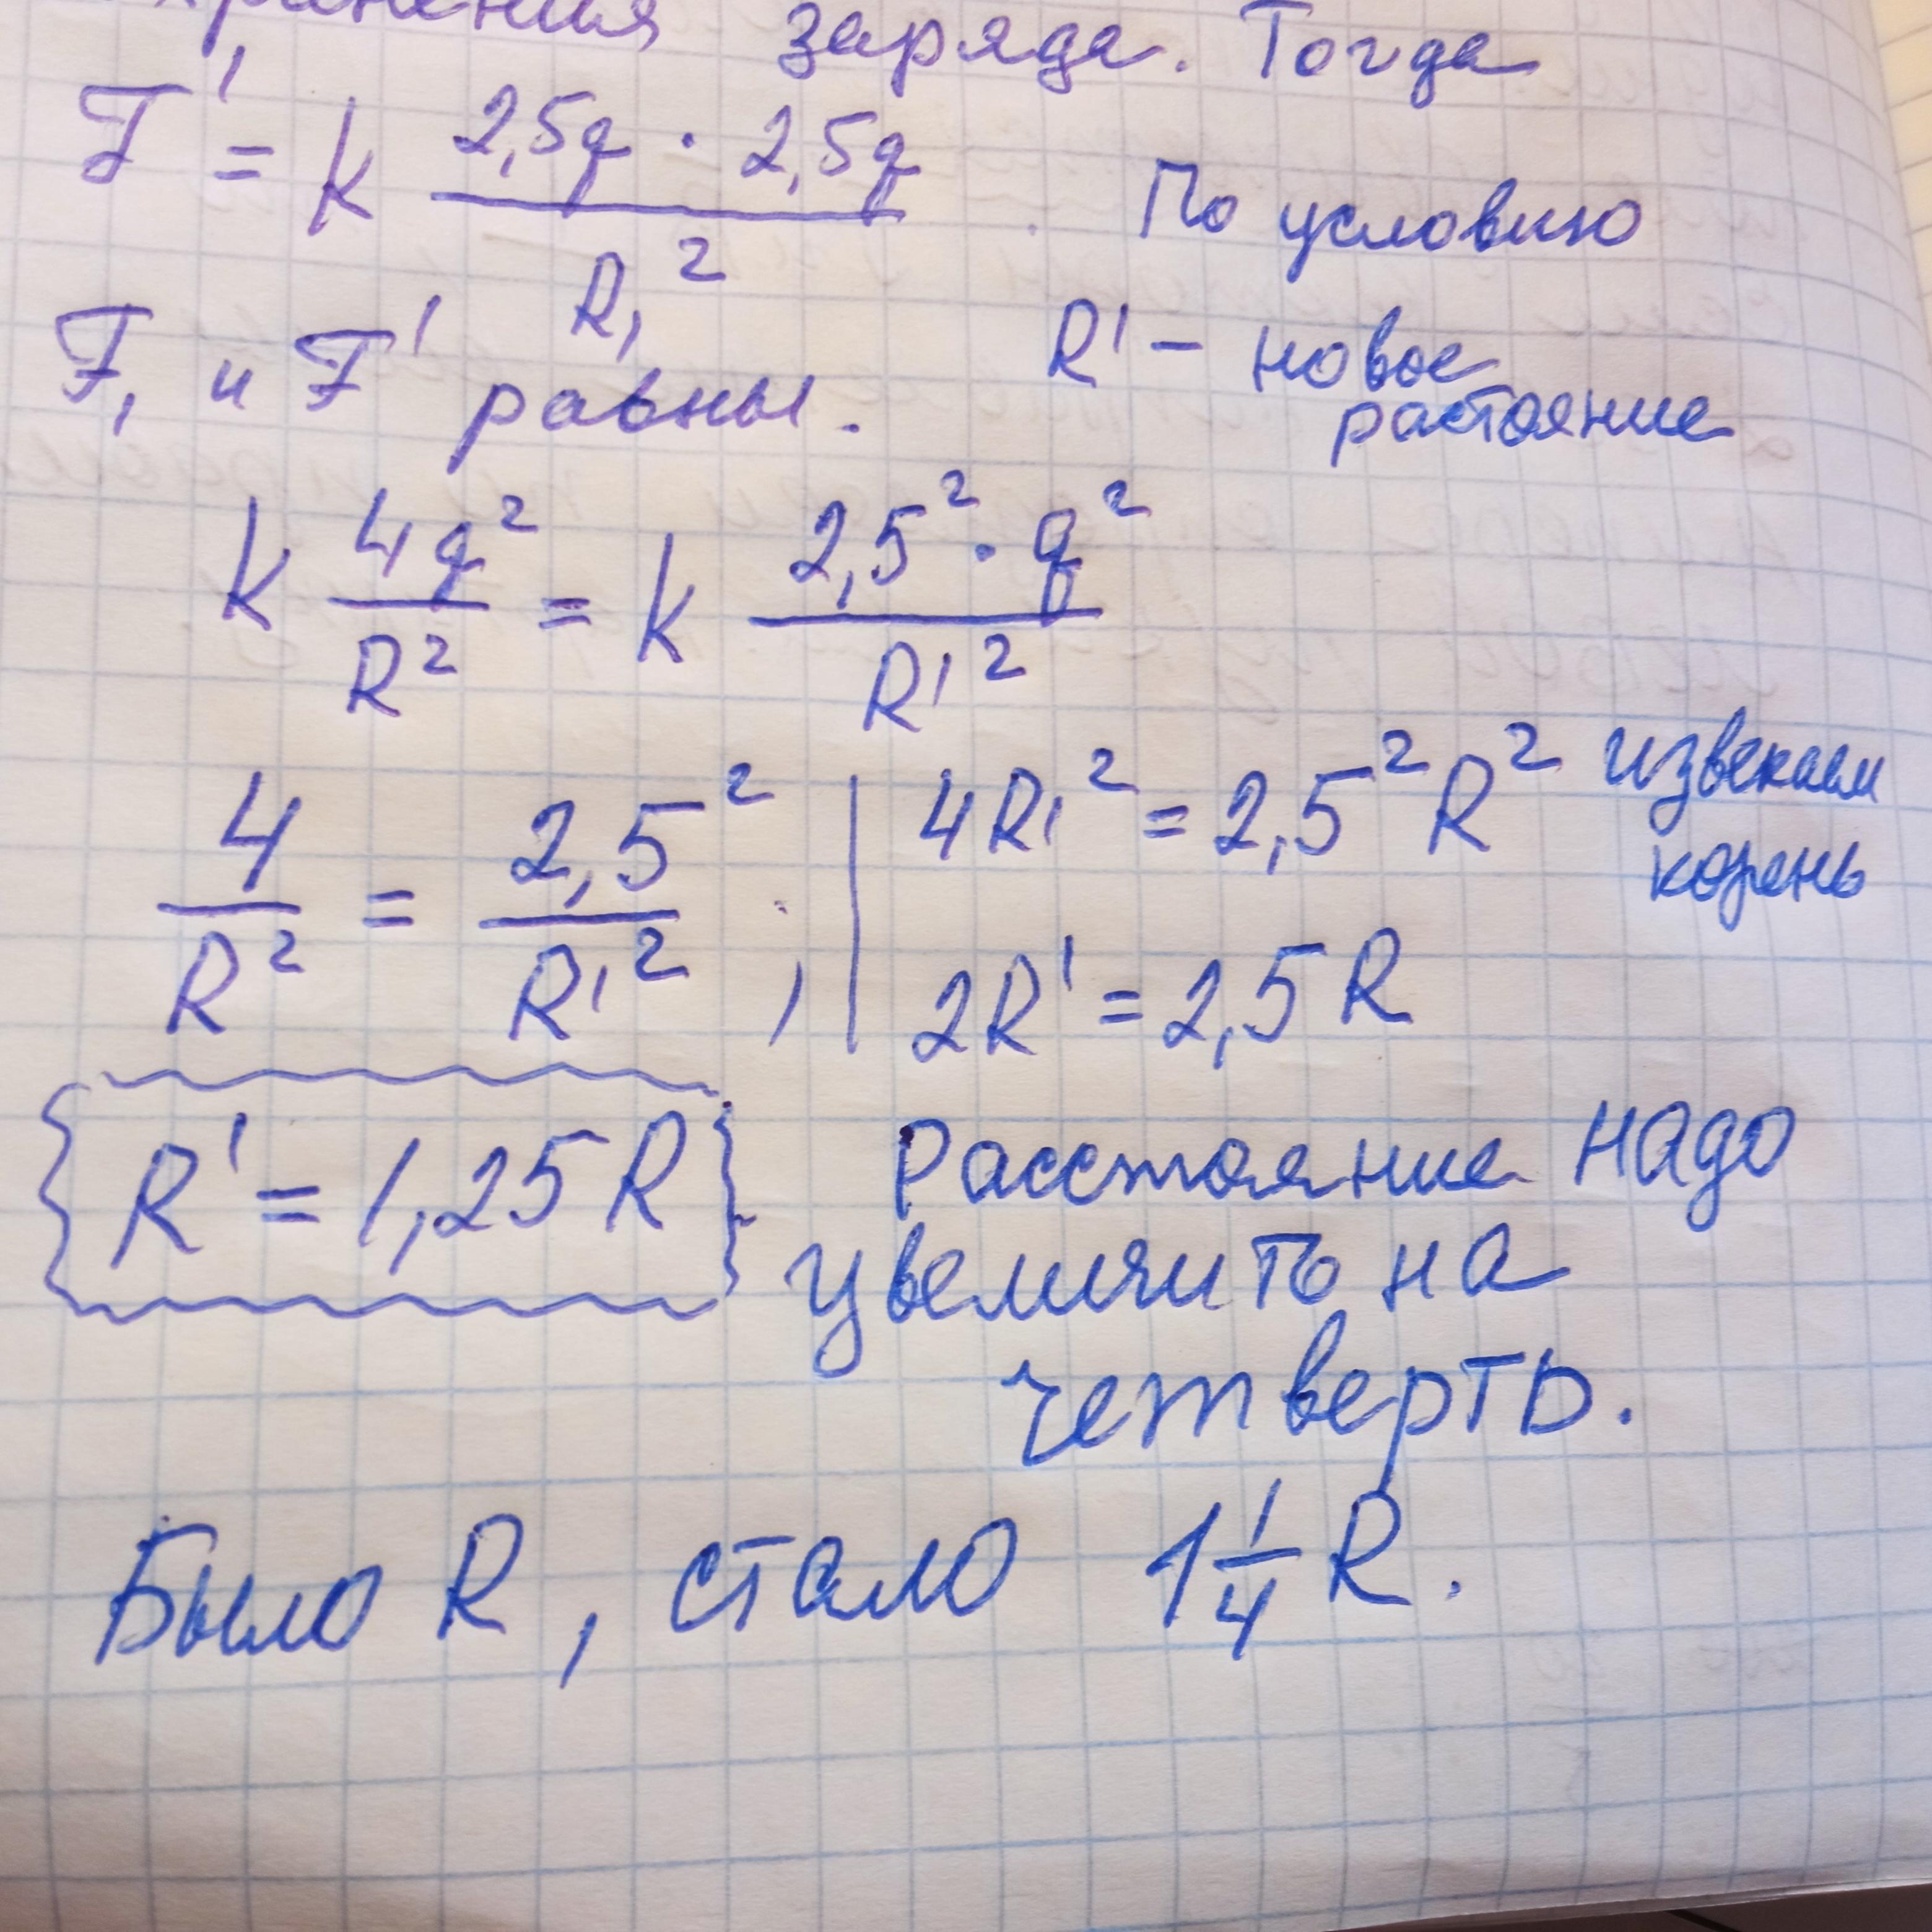 хранения заряда. Тогда
F' = k 2,5q · 2,5q / R₁² . По условию
F₁ и F' равны. R' – новое
растояние
k 4q² / R² = k 2,5² · q² / R'²
4 / R² = 2,5² / R'² ; | 4R'² = 2,5² R² извекаем
корень
2R' = 2,5 R
R' = 1,25 R Расстояние надо
увеличить на
четверть.
Было R, стало 1 1/4 R.